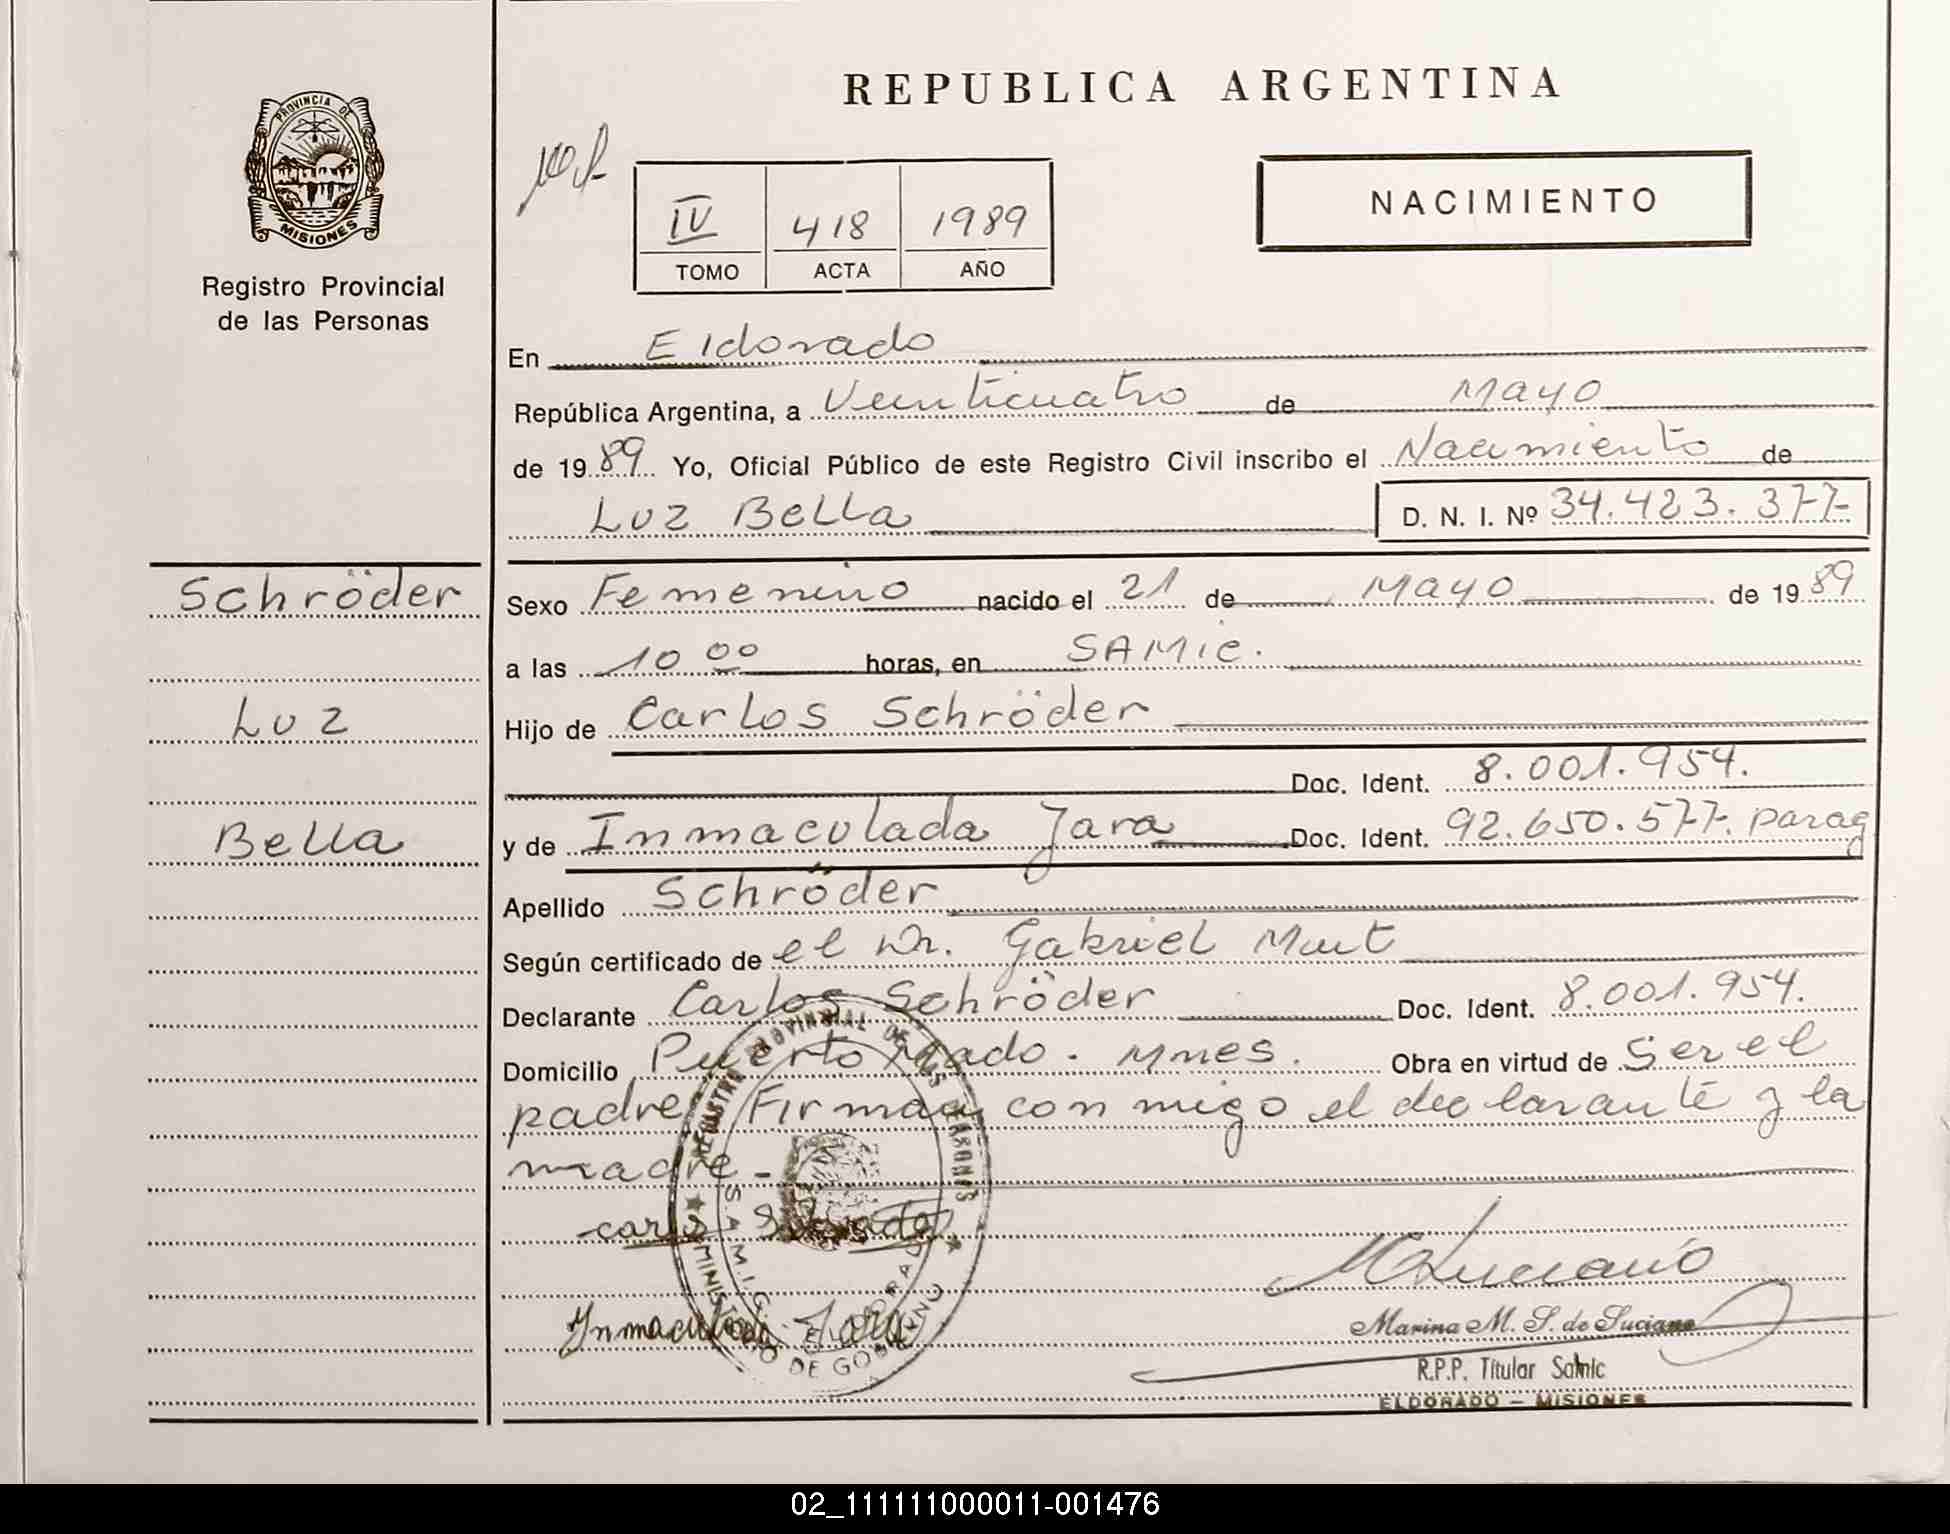 PROVINCIA DE
MISIONES
Registro Provincial
de las Personas
Schröder
Luz
Bella
REPUBLICA ARGENTINA
IV 418 1989
TOMO ACTA AÑO
NACIMIENTO
En Eldorado
República Argentina, a Veinticuatro de Mayo
de 1989 Yo, Oficial Público de este Registro Civil inscribo el Nacimiento de
Luz Bella D. N. I. Nº 34.423.377-
Sexo Femenino nacido el 21 de Mayo de 1989
a las 10 00 horas, en SAMic.
Hijo de Carlos Schröder
Doc. Ident. 8.001.954.
y de Inmaculada Jara Doc. Ident. 92.650.577. parag
Apellido Schröder
Según certificado de el Dr. Gabriel
Declarante Carlos Schröder Doc. Ident. 8.001.954.
Domicilio Puerto Mado. Mnes. Obra en virtud de Ser el
padre. Firman con migo el declarante y la
madre -
REGISTRO PROVINCIAL DE LAS PERSONAS
S.A.M.I.C. ELDORADO
MINISTERIO DE GOBIERNO
carlos
Inmaculada Jara
MLuciano
Marina M. S. de Luciano
R.P.P. Titular Samic
ELDORADO - MISIONES
02_111111000011-001476